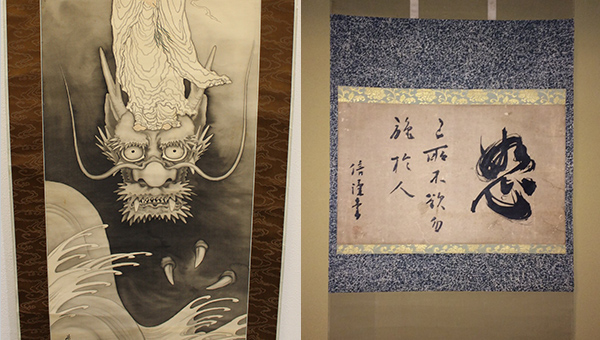 恕
己所不欲勿
施於人